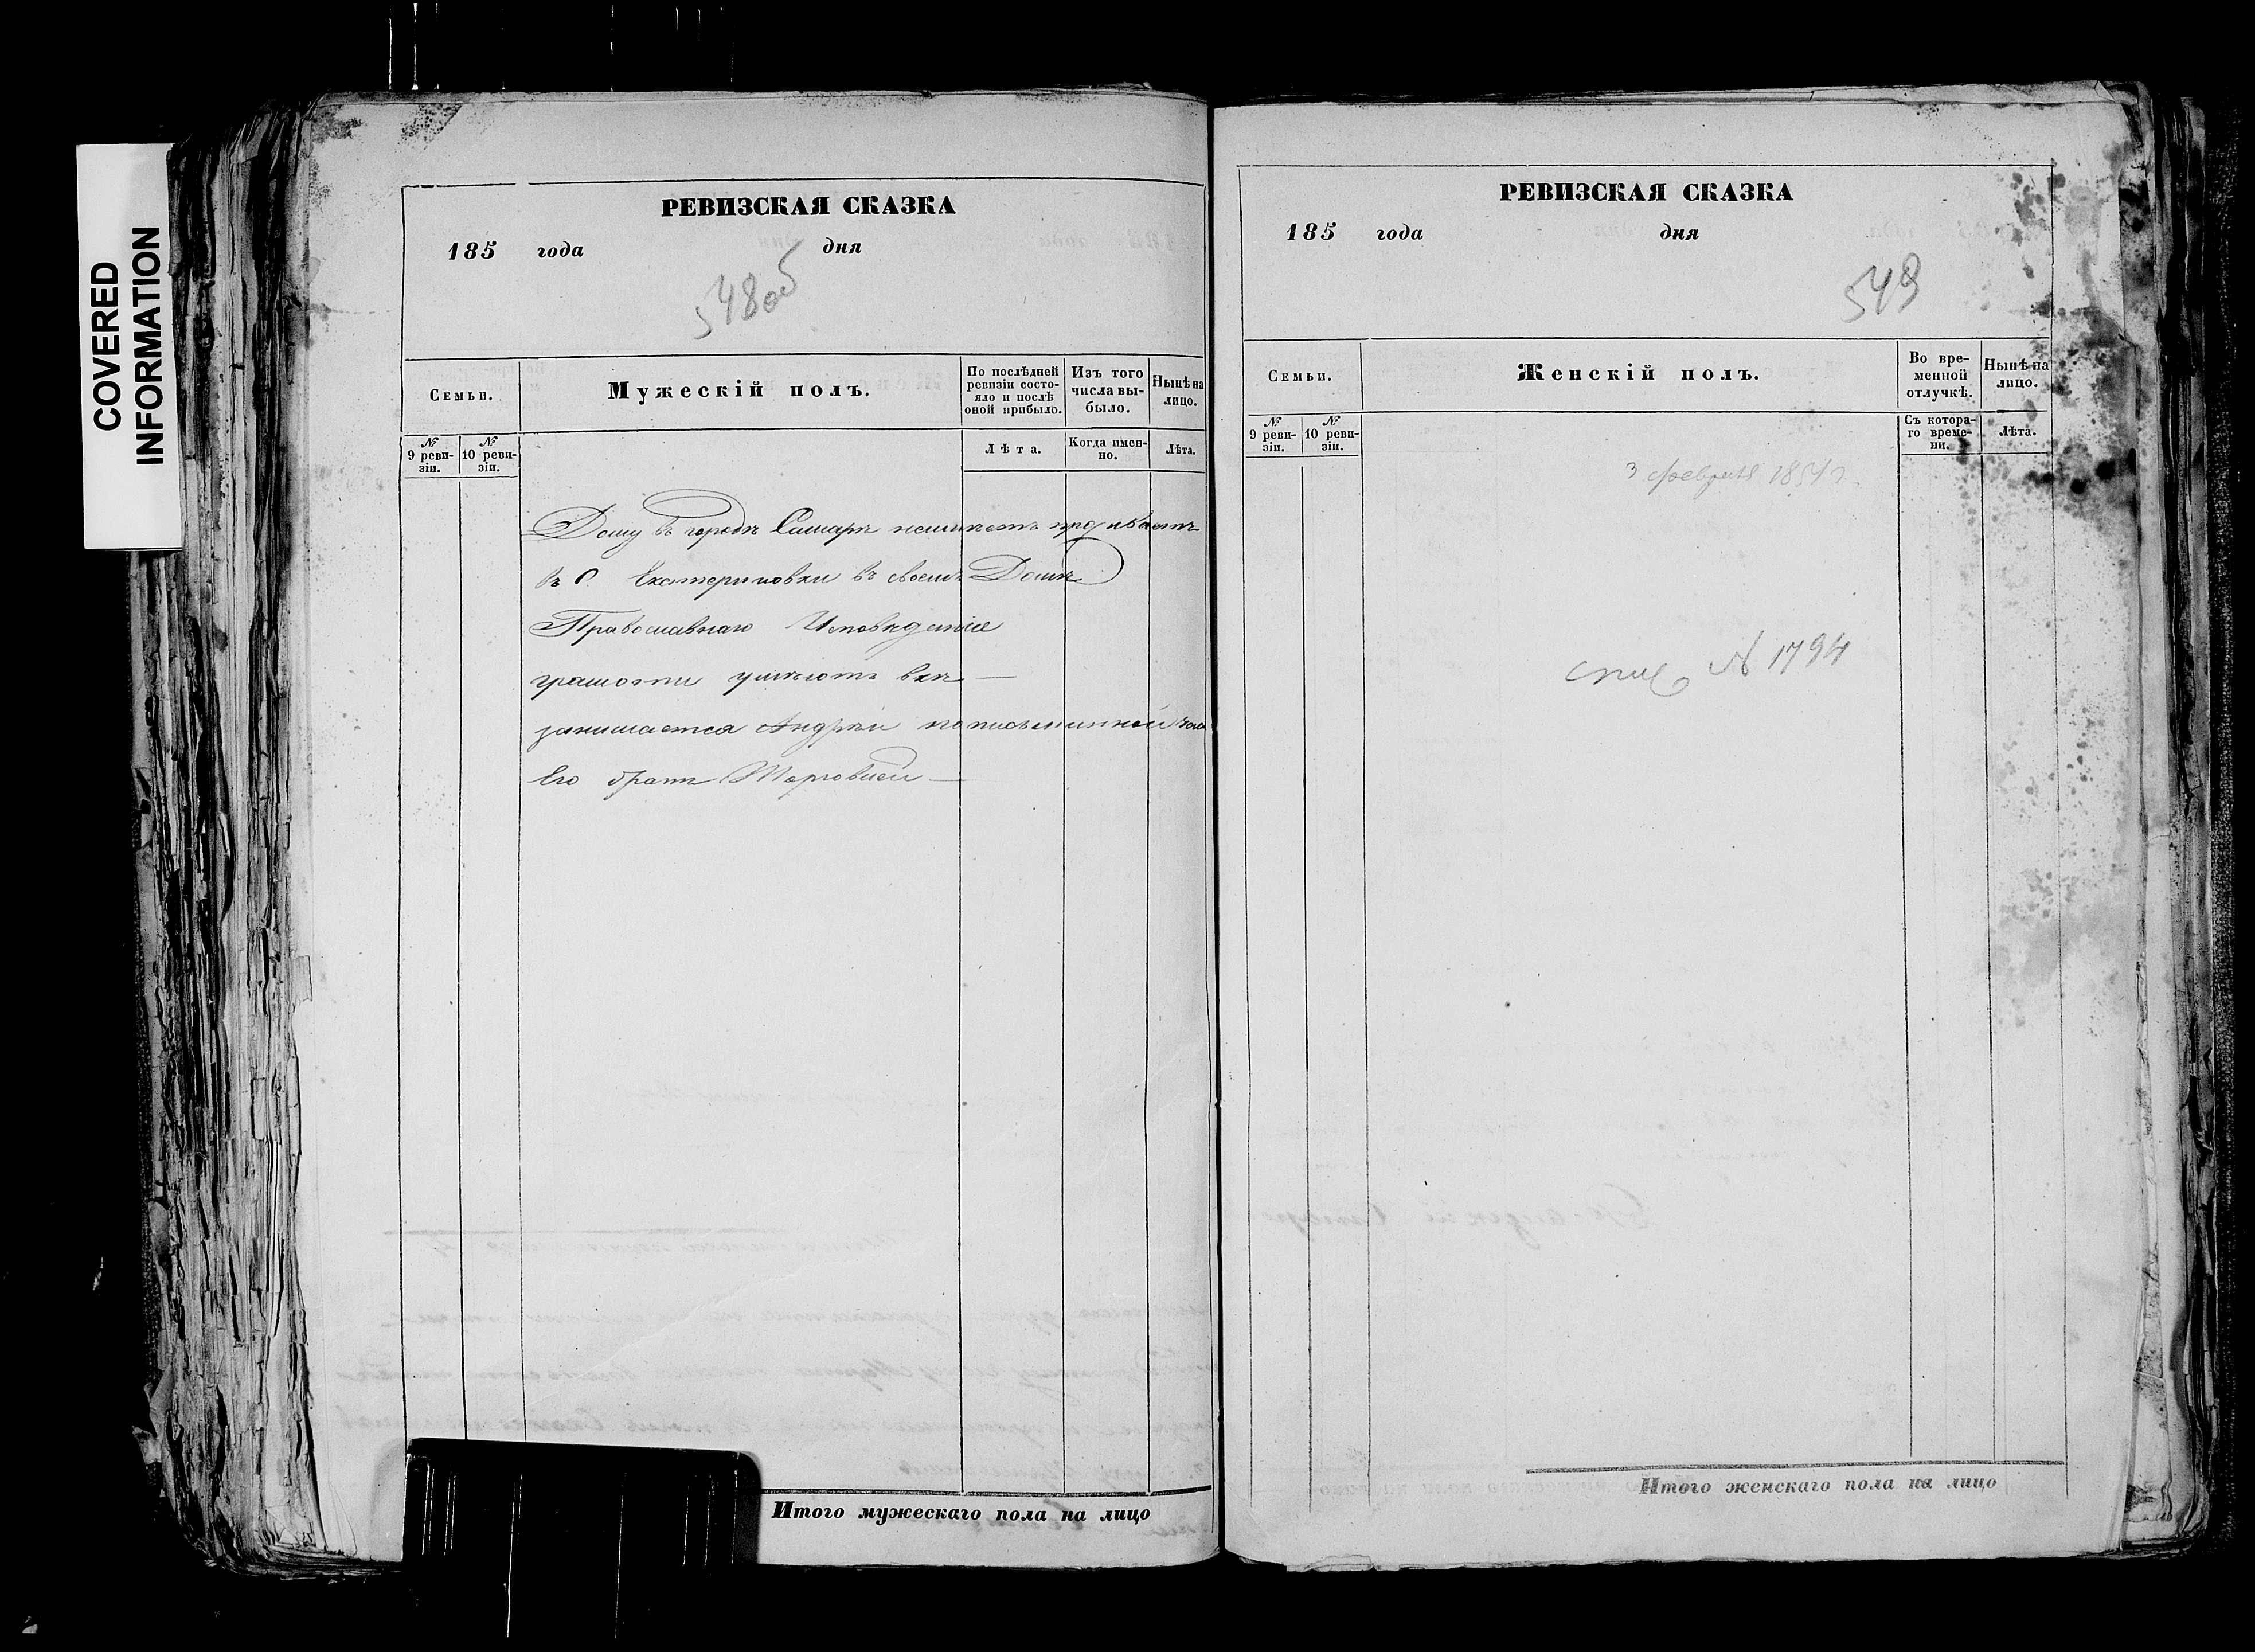 COVERED
INFORMATION
РЕВИЗСКАЯ СКАЗКА
185 года дня
548об
Семьи.
Мужескій полъ.
По послѣдней ревизіи состояло и послѣ оной прибыло.
Изъ того числа выбыло.
Нынѣ на лицо.
№ 9 ревизіи.
№ 10 ревизіи.
Лѣта.
Когда именно.
Лѣта.
Дому въ городѣ Самарѣ неимѣетъ
въ с Екатериновки въ своемъ Домѣ
Православнаго Исповѣданія
грамоти умѣютъ всѣ —
занимается Андрей по письменной
Его братъ Торговлей —
Итого мужескаго пола на лицо
РЕВИЗСКАЯ СКАЗКА
185 года дня
549
Семьи.
Женскій полъ.
Во временной отлучкѣ.
Нынѣ на лицо.
№ 9 ревизіи.
№ 10 ревизіи.
Съ котораго времени.
Лѣта.
3 февраля
№ 1794
Итого женскаго пола на лицо